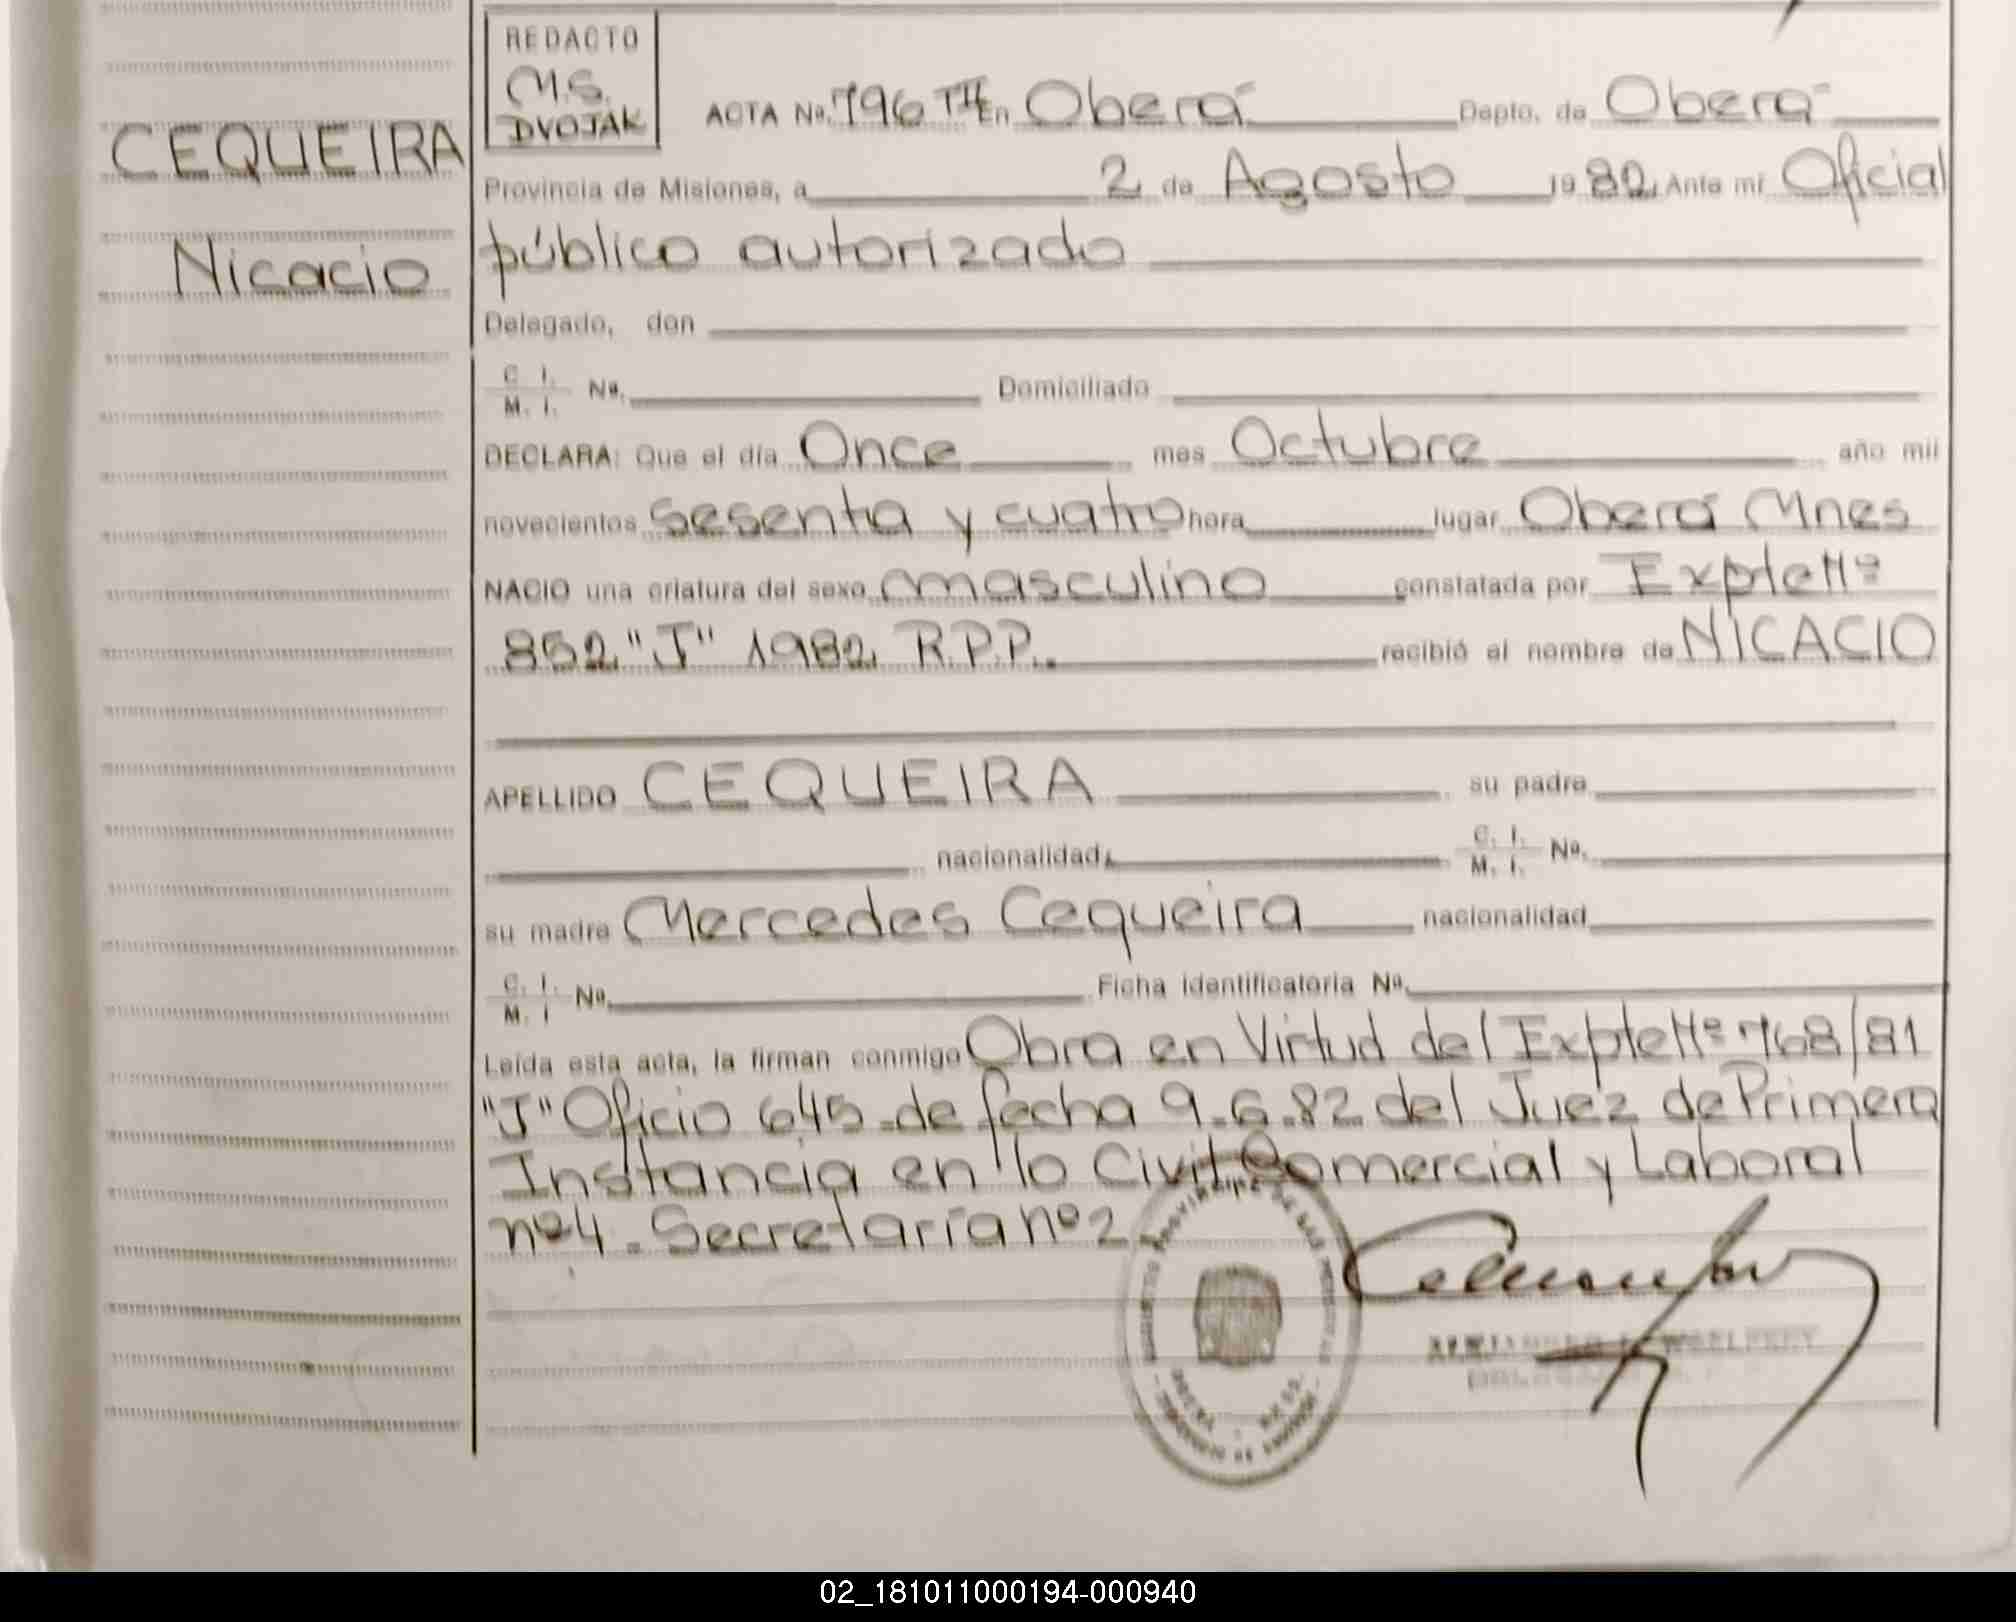 REDACTO
M.S.
DVOJAK
CEQUEIRA
Nicacio
ACTA Nº. 796 TII En Oberá Depto. de Oberá
Provincia de Misiones, a 2 de Agosto 1982. Ante mí Oficial
público autorizado
Delegado, don
C. I.
M. I. Nº. Domiciliado
DECLARA: Que el día Once mes Octubre año mil
novecientos sesenta y cuatro hora lugar Oberá Mnes
NACIO una criatura del sexo masculino constatada por Expte Nº
852 "J" 1982 R.P.P. recibió el nombre de NICACIO
APELLIDO CEQUEIRA su padre
nacionalidad C. I.
M. I. Nº.
su madre Mercedes Cequeira nacionalidad
C. I.
M. I Nº. Ficha identificatoria Nº.
Leída esta acta, la firman conmigo Obra en Virtud del Expte Nº 768/81
"J" Oficio 645 - de fecha 9-6-82 del Juez de Primera
Instancia en lo Civil Comercial y Laboral
nº 4 - Secretaría nº 2
02_181011000194-000940